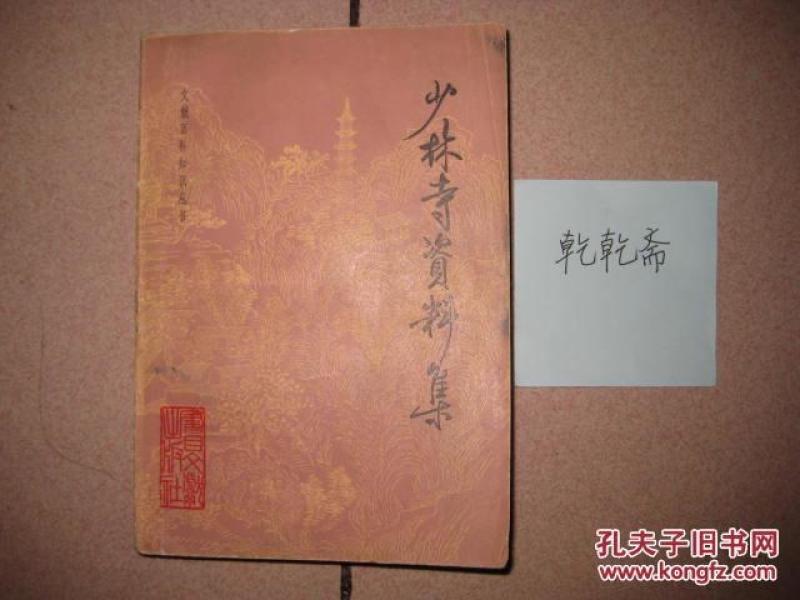 少林寺資料集
文献百科知识丛书
書目文献
出版社
乾乾斋
孔夫子旧书网
www.kongfz.com